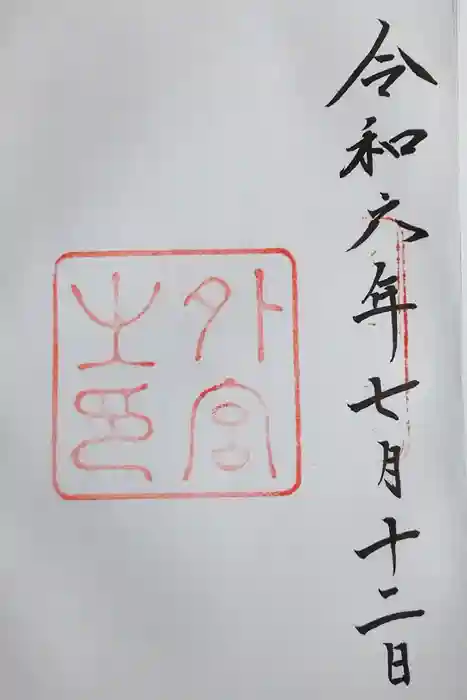 令和六年七月十二日
外宮
之印